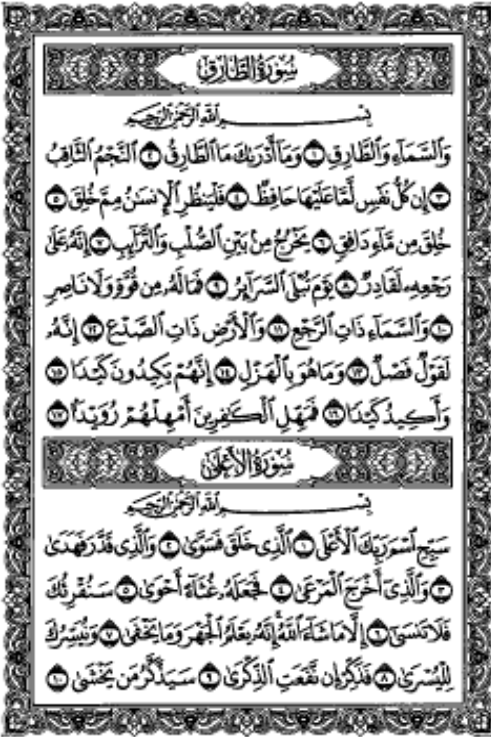 سُورَةُ الطَّارِقِ
بِسْمِ اللَّهِ الرَّحْمَٰنِ الرَّحِيمِ
وَالسَّمَاءِ وَالطَّارِقِ ١ وَمَا أَدْرَىٰكَ مَا الطَّارِقُ ٢ النَّجْمُ الثَّاقِبُ
٣ إِن كُلُّ نَفْسٍ لَّمَّا عَلَيْهَا حَافِظٌ ٤ فَلْيَنظُرِ الْإِنسَٰنُ مِمَّ خُلِقَ ٥
خُلِقَ مِن مَّاءٍ دَافِقٍ ٦ يَخْرُجُ مِن بَيْنِ الصُّلْبِ وَالتَّرَائِبِ ٧ إِنَّهُ عَلَىٰ
رَجْعِهِ لَقَادِرٌ ٨ يَوْمَ تُبْلَى السَّرَائِرُ ٩ فَمَا لَهُ مِن قُوَّةٍ وَلَا نَاصِرٍ
١٠ وَالسَّمَاءِ ذَاتِ الرَّجْعِ ١١ وَالْأَرْضِ ذَاتِ الصَّدْعِ ١٢ إِنَّهُ
لَقَوْلٌ فَصْلٌ ١٣ وَمَا هُوَ بِالْهَزْلِ ١٤ إِنَّهُمْ يَكِيدُونَ كَيْدًا ١٥
وَأَكِيدُ كَيْدًا ١٦ فَمَهِّلِ الْكَٰفِرِينَ أَمْهِلْهُمْ رُوَيْدًا ١٧
سُورَةُ الْأَعْلَىٰ
بِسْمِ اللَّهِ الرَّحْمَٰنِ الرَّحِيمِ
سَبِّحِ اسْمَ رَبِّكَ الْأَعْلَى ١ الَّذِي خَلَقَ فَسَوَّىٰ ٢ وَالَّذِي قَدَّرَ فَهَدَىٰ
٣ وَالَّذِي أَخْرَجَ الْمَرْعَىٰ ٤ فَجَعَلَهُ غُثَاءً أَحْوَىٰ ٥ سَنُقْرِئُكَ
فَلَا تَنسَىٰ ٦ إِلَّا مَا شَاءَ اللَّهُ إِنَّهُ يَعْلَمُ الْجَهْرَ وَمَا يَخْفَىٰ ٧ وَنُيَسِّرُكَ
لِلْيُسْرَىٰ ٨ فَذَكِّرْ إِن نَّفَعَتِ الذِّكْرَىٰ ٩ سَيَذَّكَّرُ مَن يَخْشَىٰ ١٠